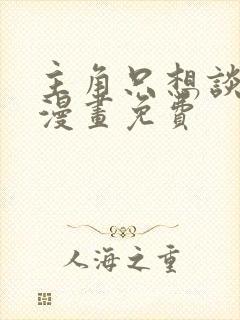 主角只想談
漫畫免費
人海之重